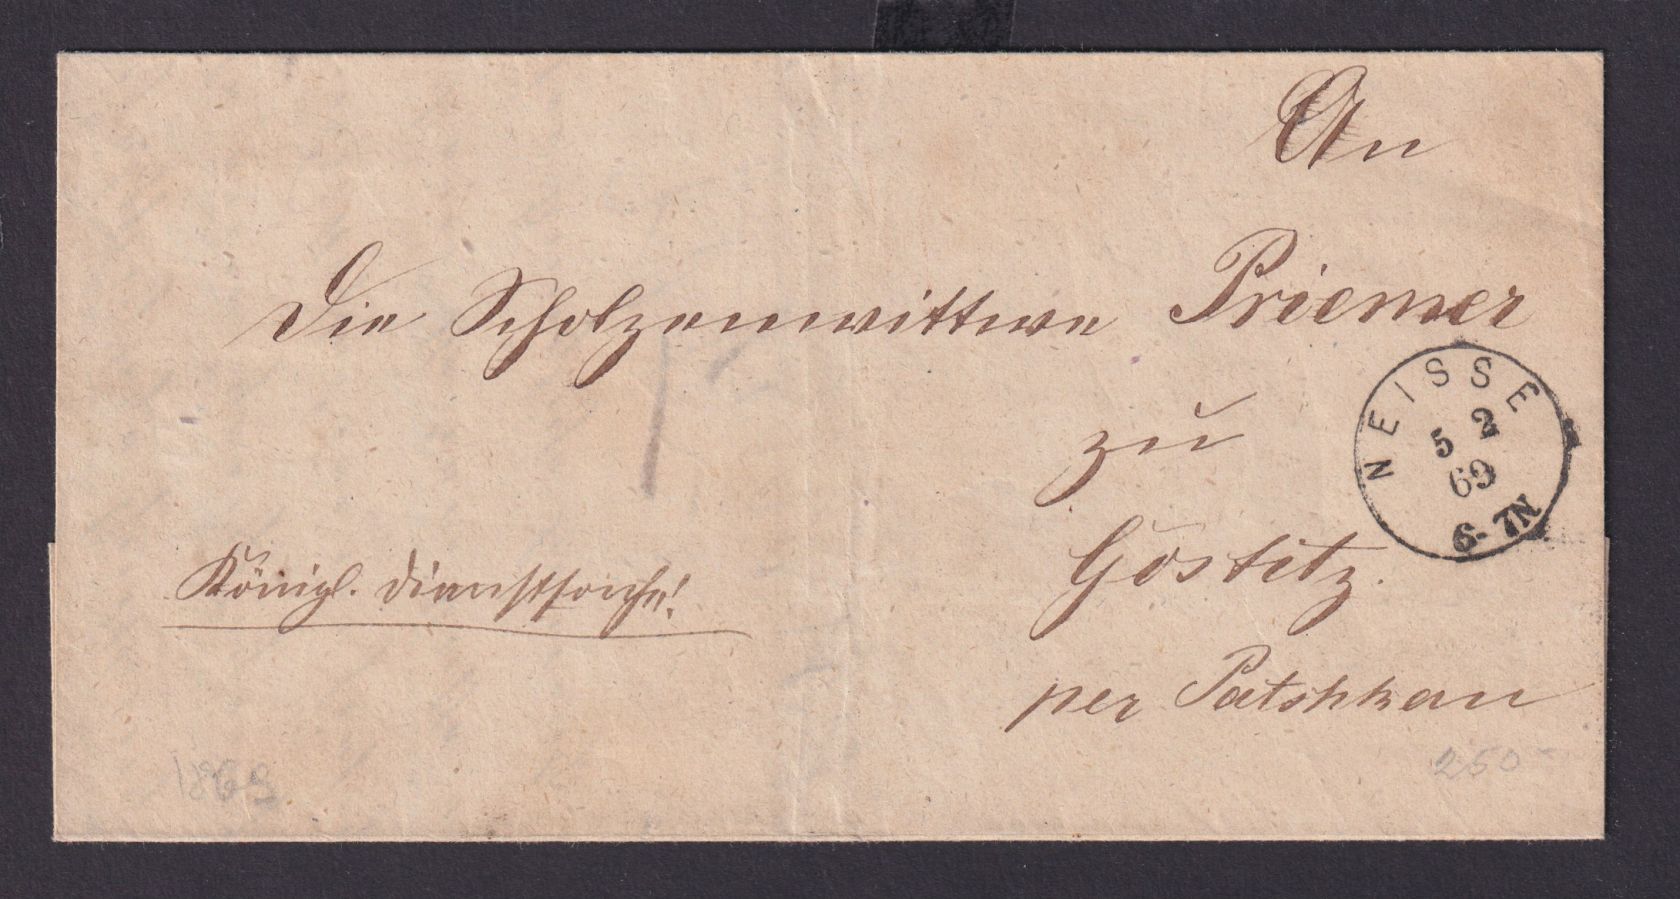 An
Die Scholzenwittwe Priemer
zu
NEISSE
5 2
69
6-7N
Göstitz.
Königl. Dienstsache!
per Patshkau
1869
250-